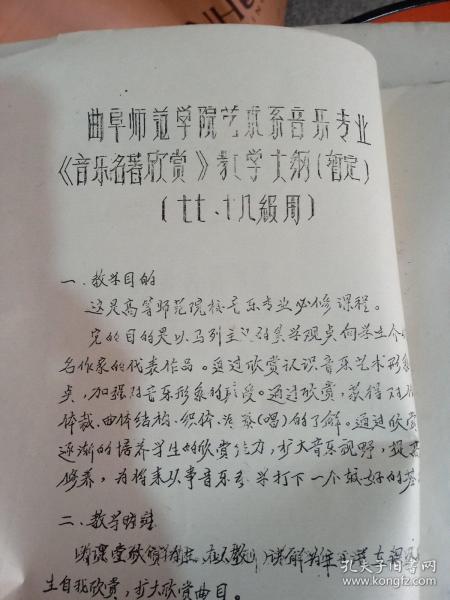 曲阜师范学院艺术系音乐专业
《音乐名著欣赏》教学大纲(暂定)
(七七、七八级用)
一、教学目的
这是高等师范院校音乐专业必修课程。
它的目的是以马列主义的美学观点向学生介
名作家的代表作品。通过欣赏认识音乐艺术形象
点,加强对音乐形象的感受。通过欣赏,获得对
体裁、曲体结构、织体、演奏(唱)的了解。通过欣赏
逐渐的培养学生的欣赏能力,扩大音乐视野,提高
修养,为将来从事音乐教学打下一个较好的基
二、教学
课堂欣赏 讲解为
生自我欣赏,扩大欣赏曲目。
孔夫子旧书网